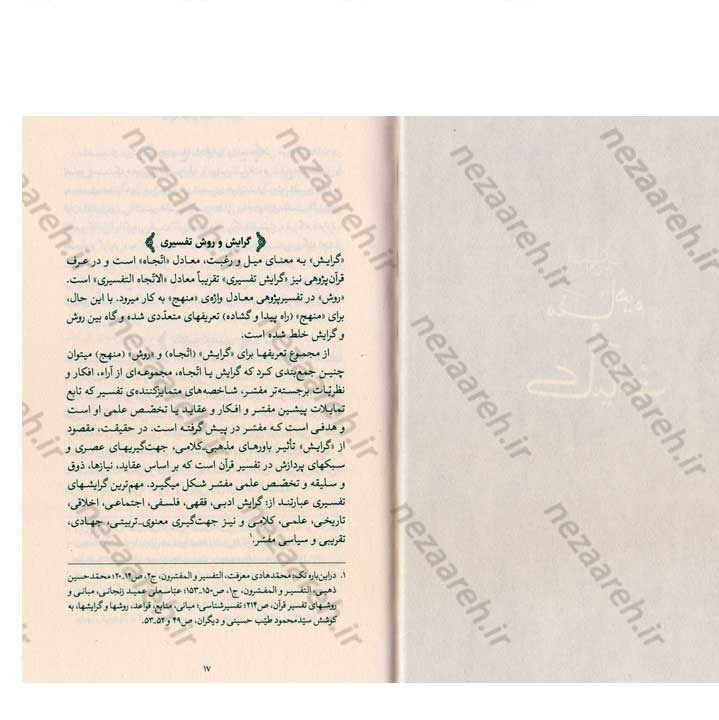 گرایش و روش تفسیری
«گرایش» به معنای میل و رغبت، معادل «اتّجاه» است و در عرف
قرآن‌پژوهی نیز «گرایش تفسیری» تقریباً معادل «الاتّجاه التفسیری» است.
«روش» در تفسیرپژوهی معادل واژه‌ی «منهج» به کار میرود. با این حال،
برای «منهج» (راه پیدا و گشاده) تعریفهای متعدّدی شده و گاه بین روش
و گرایش خلط شده است.
از مجموع تعریفها برای «گرایش» (اتّجاه) و «روش» (منهج) میتوان
چنین جمع‌بندی کرد که گرایش یا اتّجاه، مجموعه‌ای از آراء، افکار و
نظریّات برجسته‌تر مفسّر، شاخصه‌های متمایزکننده‌ی تفسیر که تابع
تمایلات پیشین مفسّر و افکار و عقاید یا تخصّص علمی او است
و هدفی است که مفسّر در پیش گرفته است. در حقیقت، مقصود
از «گرایش» تأثیر باورهای مذهبی‌ـ‌کلامی، جهت‌گیریهای عصری و
سبکهای پردازش در تفسیر قرآن است که بر اساس عقاید، نیازها، ذوق
و سلیقه و تخصّص علمی مفسّر شکل میگیرد. مهم‌ترین گرایشهای
تفسیری عبارتند از: گرایش ادبی، فقهی، فلسفی، اجتماعی، اخلاقی،
تاریخی، علمی، کلامی و نیز جهت‌گیری معنوی‌ـ‌تربیتی، جهادی،
تقریبی و سیاسی مفسّر.۱
۱. دراین‌باره نک: محمّدهادی معرفت، التفسیر و المفسّرون، ج۲، ص۱۴ـ۲۰؛ محمّدحسین
ذهبی، التفسیر و المفسّرون، ج۱، ص۱۵۰ـ۱۵۳؛ عبّاسعلی عمید زنجانی، مبانی و
روشهای تفسیر قرآن، ص۲۱۴؛ تفسیرشناسی؛ مبانی، منابع، قواعد، روشها و گرایشها، به
کوشش سیّدمحمود طیّب حسینی و دیگران، ص۴۹ و ۵۲ـ۵۳.
۱۷
nezaareh.ir
nezaareh.ir
nezaareh.ir
nezaareh.ir
nezaareh.ir
nezaareh.ir
nezaareh.ir
nezaareh.ir